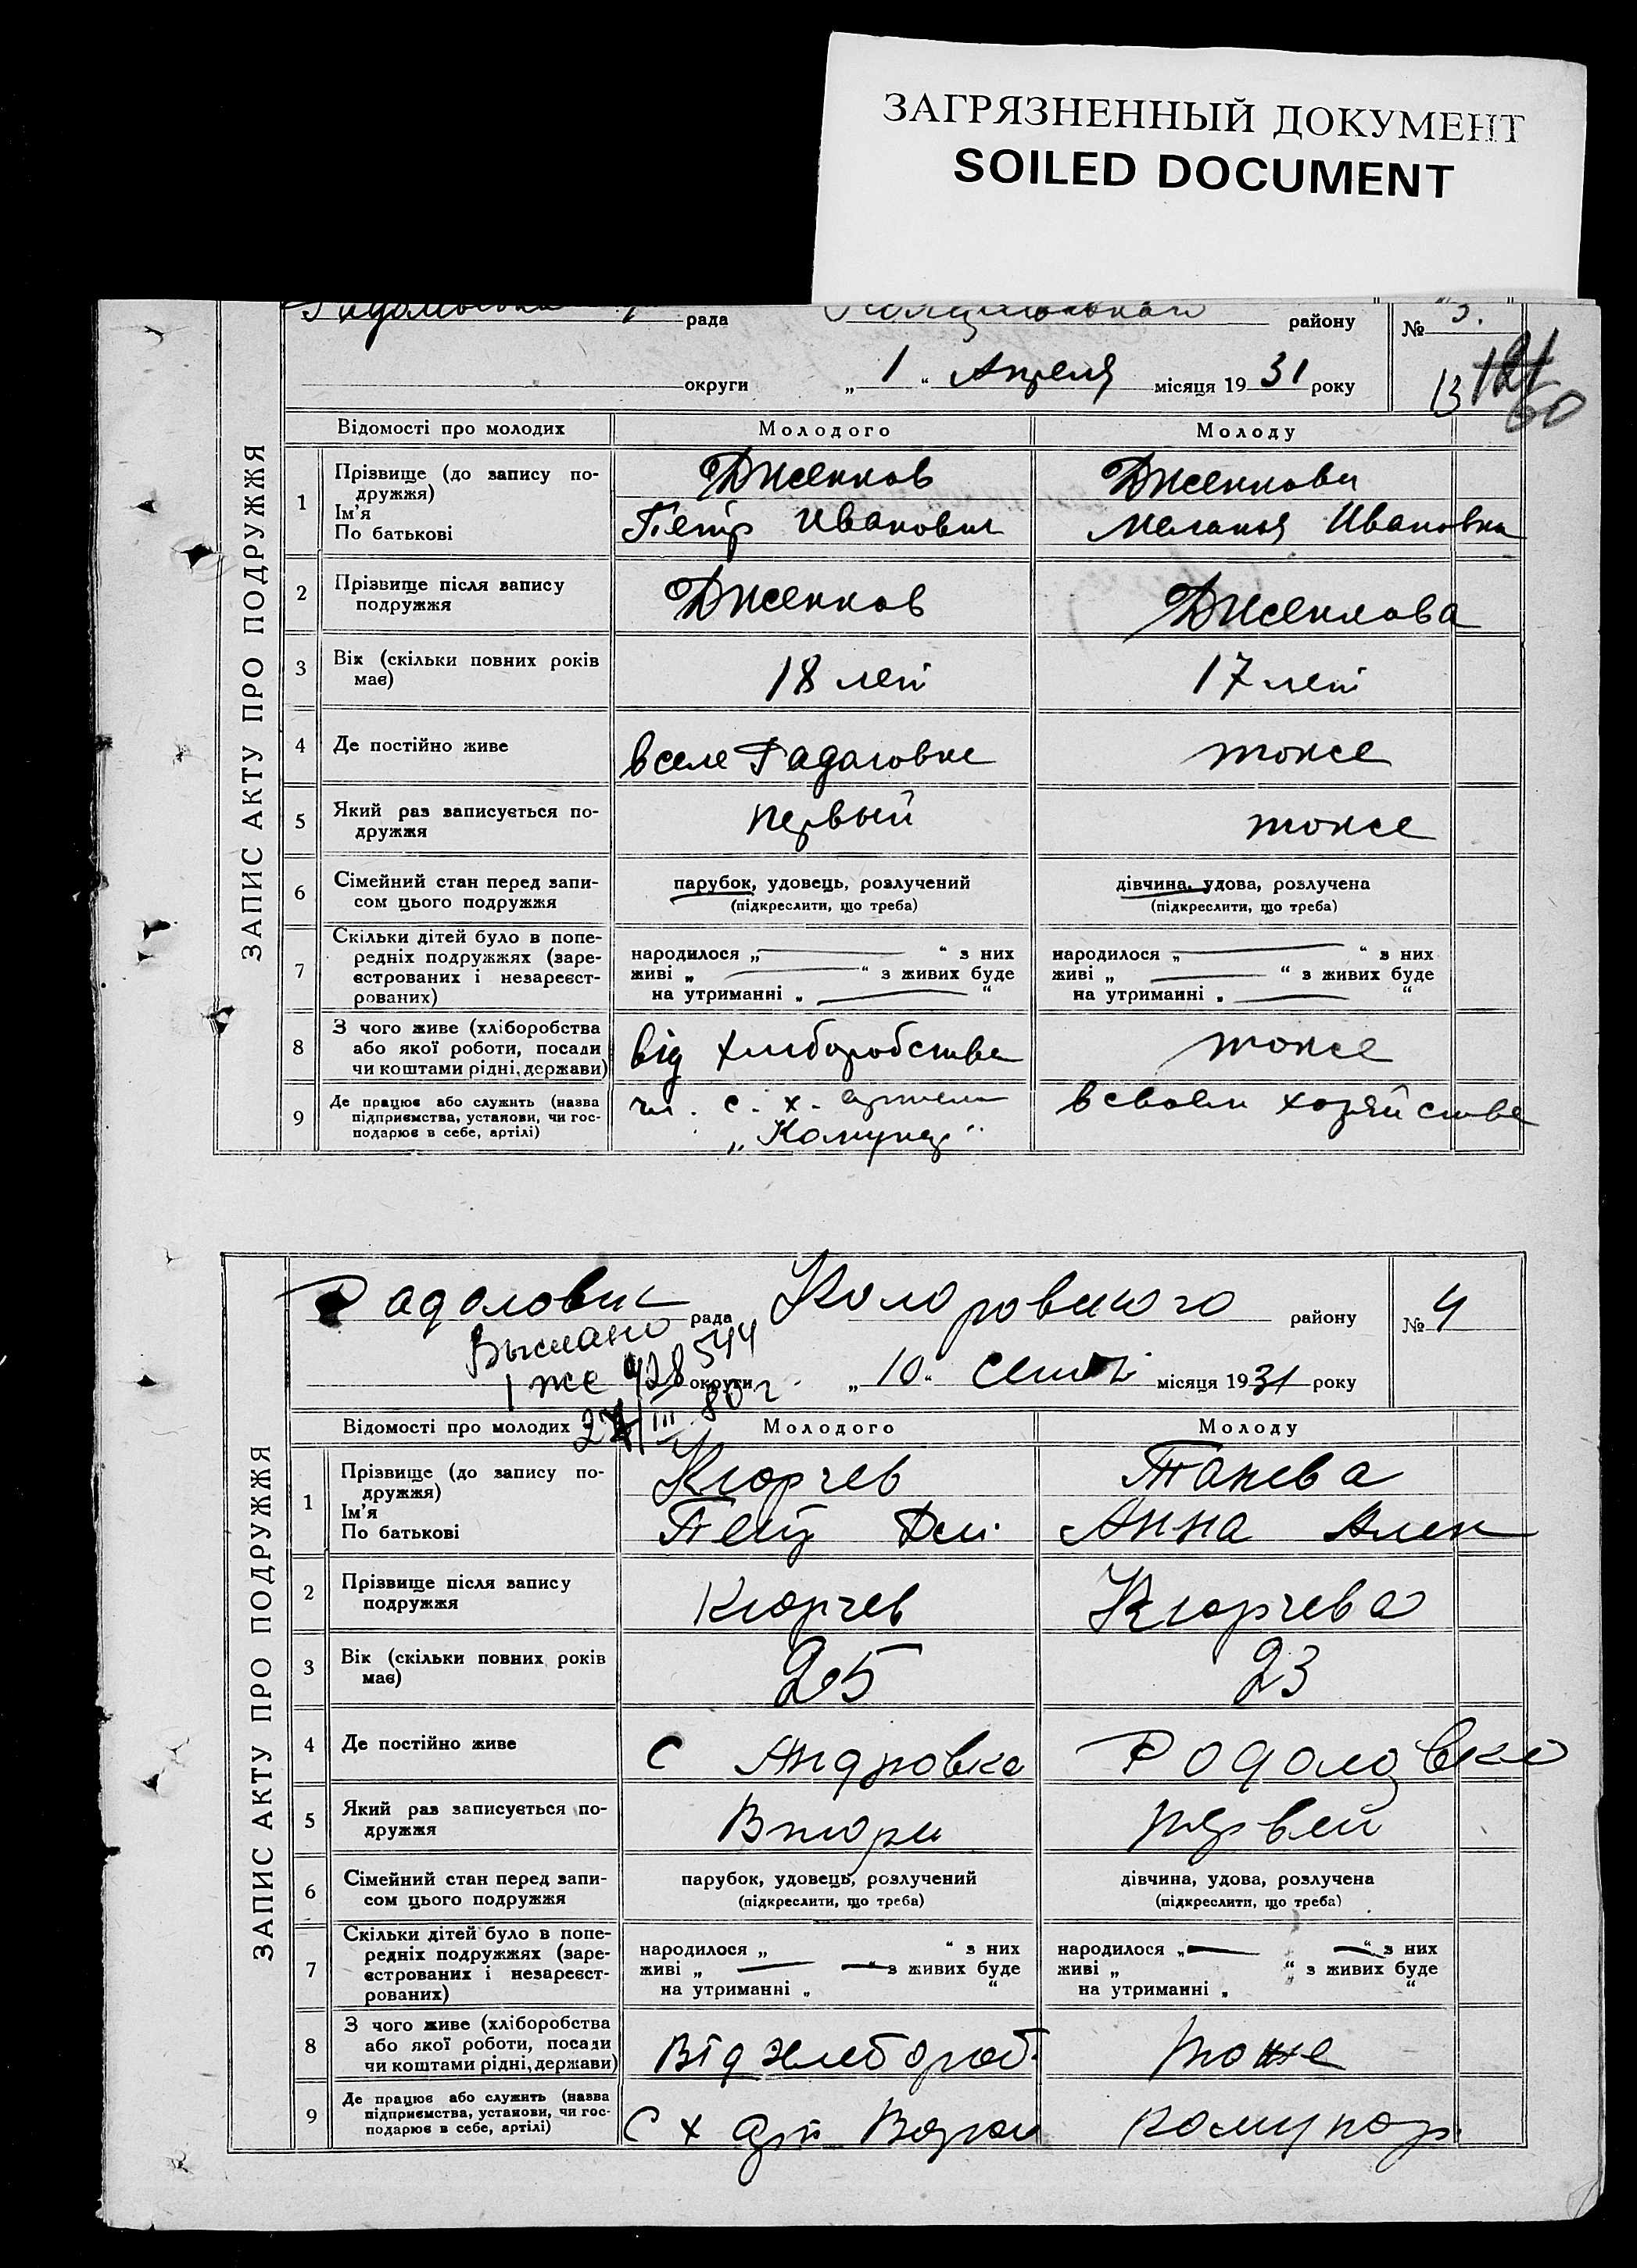 ЗАГРЯЗНЕННЫЙ ДОКУМЕНТ
SOILED DOCUMENT
рада району № 3.
округи „ 1 “ Апреля місяця 19 31 року
13 121
60
ЗАПИС АКТУ ПРО ПОДРУЖЖЯ
Відомості про молодих Молодого Молоду
1 Прізвище (до запису по-
дружжя)
Ім'я
По батькові
Дженков Дженкова
Петр Иванович Мелания Ивановна
2 Прізвище після запису
подружжя
Дженков Дженкова
3 Вік (скільки повних років
має)
18 лет 17 лет
4 Де постійно живе в селе Радаловке тоже
5 Який раз записується по-
дружжя
первый тоже
6 Сімейний стан перед запи-
сом цього подружжя
парубок, удовець, розлучений дівчина, удова, розлучена
(підкреслити, що треба) (підкреслити, що треба)
7 Скільки дітей було в попе-
редніх подружжях (заре-
єстрованих і незареєст-
рованих)
народилося „ “ з них народилося „ “ з них
живі „ “ з живих буде живі „ “ з живих буде
на утриманні „ “ на утриманні „ “
8 З чого живе (хліборобства
або якої роботи, посади
чи коштами рідні, держави)
від хлиборобства тоже
9 Де працює або служить (назва
підприємства, установи, чи гос-
подарює в себе, артілі)
чл. с. х. артели в своем хозяйстве
„Комунар“
ЗАПИС АКТУ ПРО ПОДРУЖЖЯ
Радоловк рада Коларовского району № 4
Выслано 544
1 же 928 округи „ 10 “ місяця 1931 року
27/III 80 г.
Відомості про молодих Молодого Молоду
1 Прізвище (до запису по-
дружжя)
Ім'я
По батькові
Кюрчев Танева
Петр Дми. Анна Алек
2 Прізвище після запису
подружжя
Кюрчев Кюрчева
3 Вік (скільки повних років
має)
25 23
4 Де постійно живе С Андровка Родоловка
5 Який раз записується по-
дружжя
Втори первей
6 Сімейний стан перед запи-
сом цього подружжя
парубок, удовець, розлучений дівчина, удова, розлучена
(підкреслити, що треба) (підкреслити, що треба)
7 Скільки дітей було в попе-
редніх подружжях (заре-
єстрованих і незареєст-
рованих)
народилося „ “ з них народилося „ “ з них
живі „ “ з живих буде живі „ “ з живих буде
на утриманні „ “ на утриманні „ “
8 З чого живе (хліборобства
або якої роботи, посади
чи коштами рідні, держави)
Від хлебороб. тоже
9 Де працює або служить (назва
підприємства, установи, чи гос-
подарює в себе, артілі)
С х арт комунар.